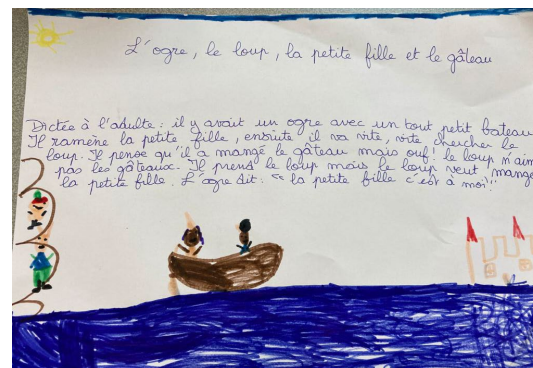 L'ogre, le loup, la petite fille et le gâteau
Dictée à l'adulte : il y avait un ogre avec un tout petit bateau
Il ramène la petite fille, ensuite il va vite, vite chercher le
loup. Il pense qu'il a mangé le gâteau mais ouf! le loup n'aim
pas les gâteaux. Il prend le loup mais le loup veut mange
la petite fille. L'ogre dit : "la petite fille c'est à moi!"